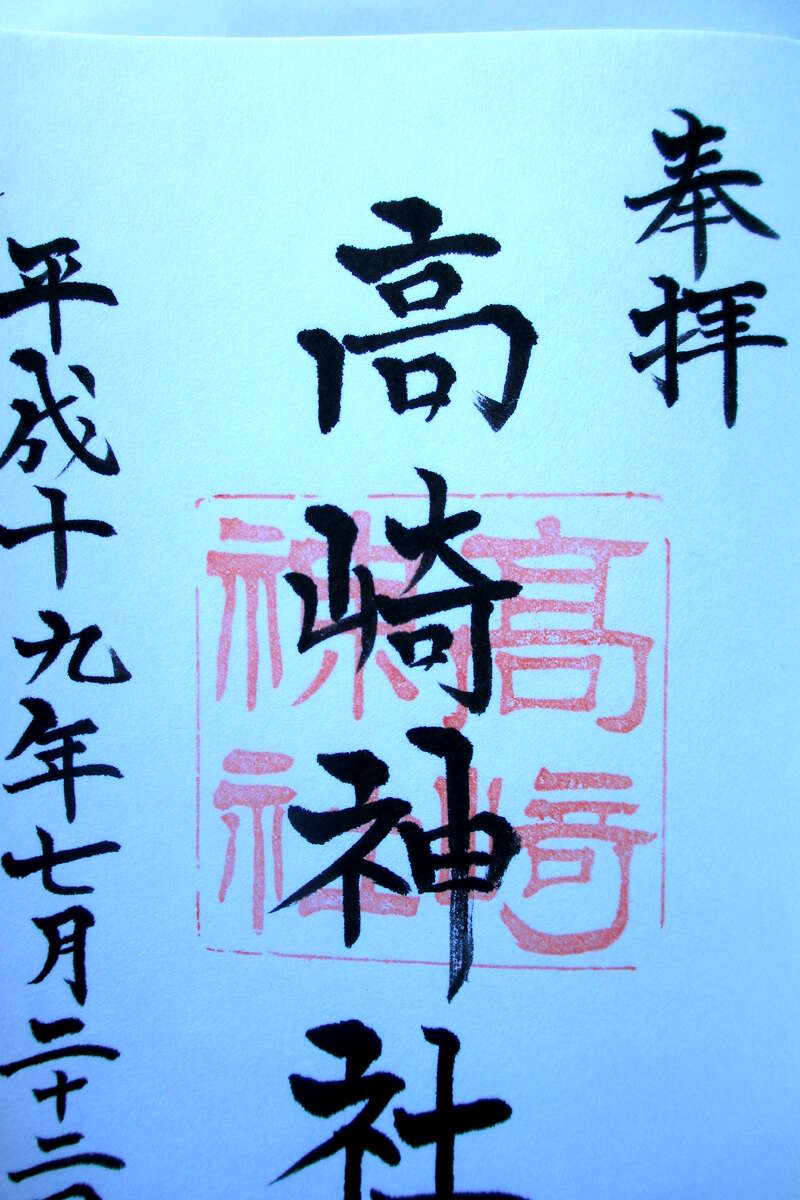 奉拝
高崎神社
高崎神社
平成十九年七月二十二日